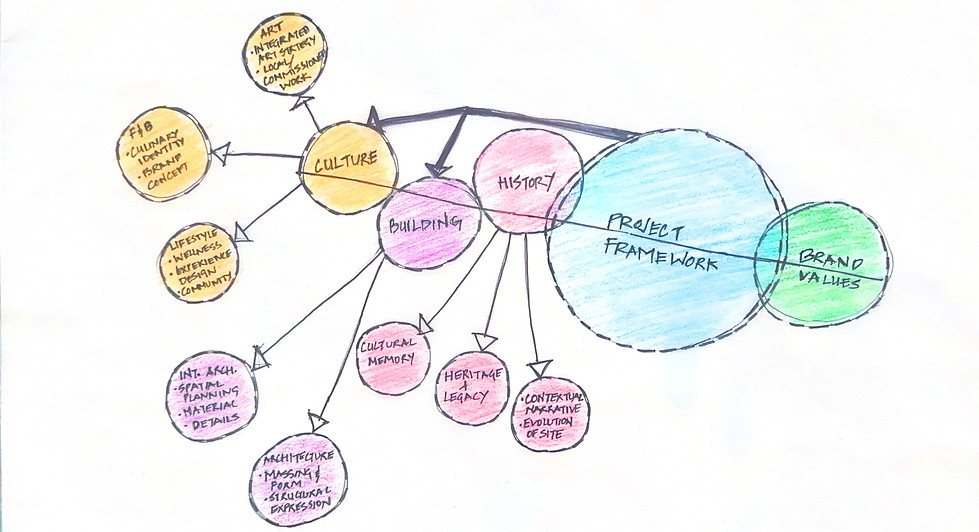 ART
• INTEGRATED
ART STRATEGY
• LOCAL/
COMMISSIONED
WORK
F&B
• CULINARY
IDENTITY
• BRAND
CONCEPT
CULTURE
LIFESTYLE
• WELLNESS
• EXPERIENCE
DESIGN
• COMMUNITY
BUILDING
HISTORY
PROJECT
FRAMEWORK
BRAND
VALUES
INT. ARCH.
• SPATIAL
PLANNING
• MATERIAL
• DETAILS
ARCHITECTURE
• MASSING &
FORM
• STRUCTURAL
EXPRESSION
CULTURAL
MEMORY
HERITAGE
&
LEGACY
• CONTEXTUAL
NARRATIVE
• EVOLUTION
OF SITE